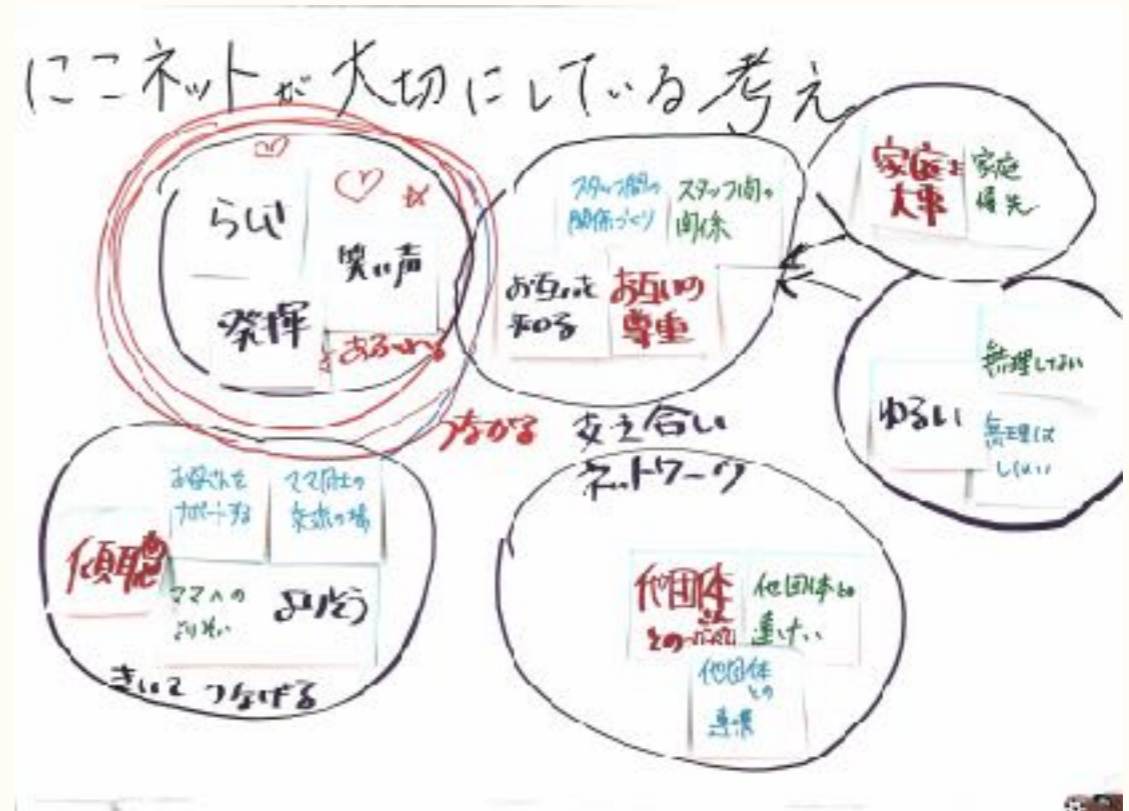 にこネットが大切にしている考え
らしく
発揮
笑い声
あふれる
スタッフ間の
関係づくり
スタッフ間の
関係
お互いを
知る
お互いの
尊重
家庭も
大事
家庭
優先
ゆるい
無理しない
無理は
しない
つながる
支え合い
ネットワーク
お母さんを
サポートする
ママ同士の
交流の場
傾聴
ママへの
よりそい
よりそう
きいて つなげる
他団体
との
他団体との
連けい
他団体
との
連携